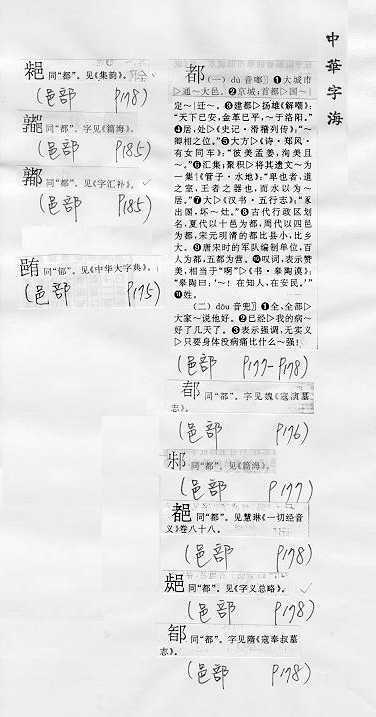 中華字海
都(一) dū 音嘟❶大城市
▷通~大邑。❷京城;首都▷国~|
定~|迁~。❸建都▷扬雄《解嘲》:
“天下已安,金革已平,~于洛阳。”
❹居;处▷《史记·滑稽列传》:“~
卿相之位。”❺大方▷《诗·郑风·
有女同车》:“彼美孟姜,洵美且
~。”❻汇集;聚积▷将其遗文~为
一集|《管子·水地》:“卑也者,道
之室,王者之器也,而水以为~
居。”❼大▷《汉书·五行志》:“豕
出圂,坏~灶。”❽古代行政区划
名,夏代以十邑为都,周代以四邑
为都,宋元明清的都比县小,比乡
大。❾唐宋时的军队编制单位,百
人为都,五都为营。❿叹词,表示赞
美,相当于“啊”▷《书·皋陶谟》:
“皋陶曰:‘~!在知人,在安民。’”
⓫姓。
(二) dōu 音兜❶全、全部▷
大家~说他好。❷已经▷我的病~
好了几天了。❸表示强调,无实义
▷只要身体没病痛比什么~强!
(邑部 P177-P178)
同“都”。字见魏《寇演墓
志》。
(邑部 P176)
同“都”。见《篇海》。
(邑部 P177)
同“都”。见慧琳《一切经音
义》卷八十八。
(邑部 P178)
同“都”。见《字义总略》。
(邑部 P178)
同“都”。字见隋《寇奉叔墓
志》。
(邑部 P178)
同“都”。见《集韵》。
(邑部 P178)
同“都”。字见《篇海》。
(邑部 P185)
同“都”。见《字汇补》。
(邑部 P185)
同“都”。见《中华大字典》。
(邑部 P175)